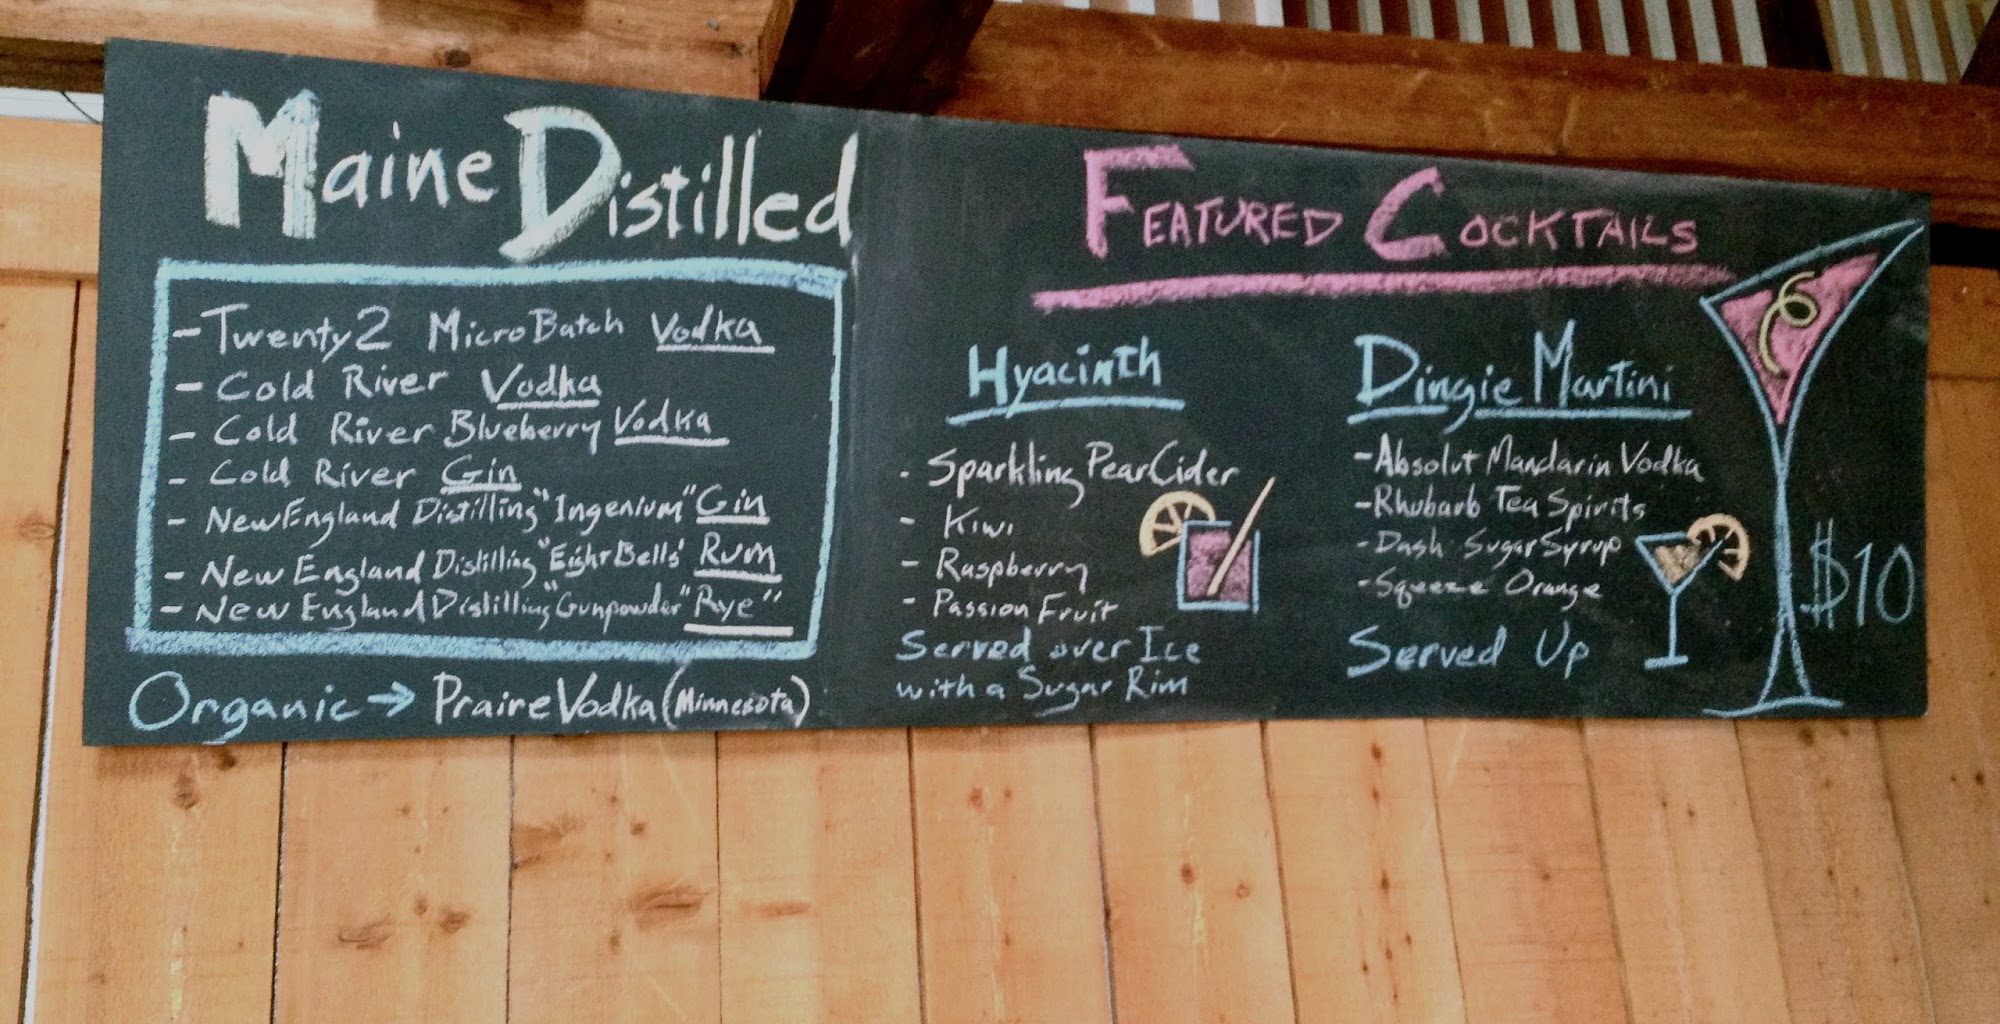 Maine Distilled
- Twenty2 MicroBatch Vodka
- Cold River Vodka
- Cold River Blueberry Vodka
- Cold River Gin
- New England Distilling "Ingenium" Gin
- New England Distilling "Eight Bells" Rum
- New England Distilling "Gunpowder" Rye"
Organic → Praire Vodka (Minnesota)
Featured Cocktails
Hyacinth
- Sparkling Pear Cider
- Kiwi
- Raspberry
- Passion Fruit
Served over Ice
with a Sugar Rim
Dingie Martini
- Absolut Mandarin Vodka
- Rhubarb Tea Spirits
- Dash Sugar Syrup
- Squeeze Orange
Served Up
$10